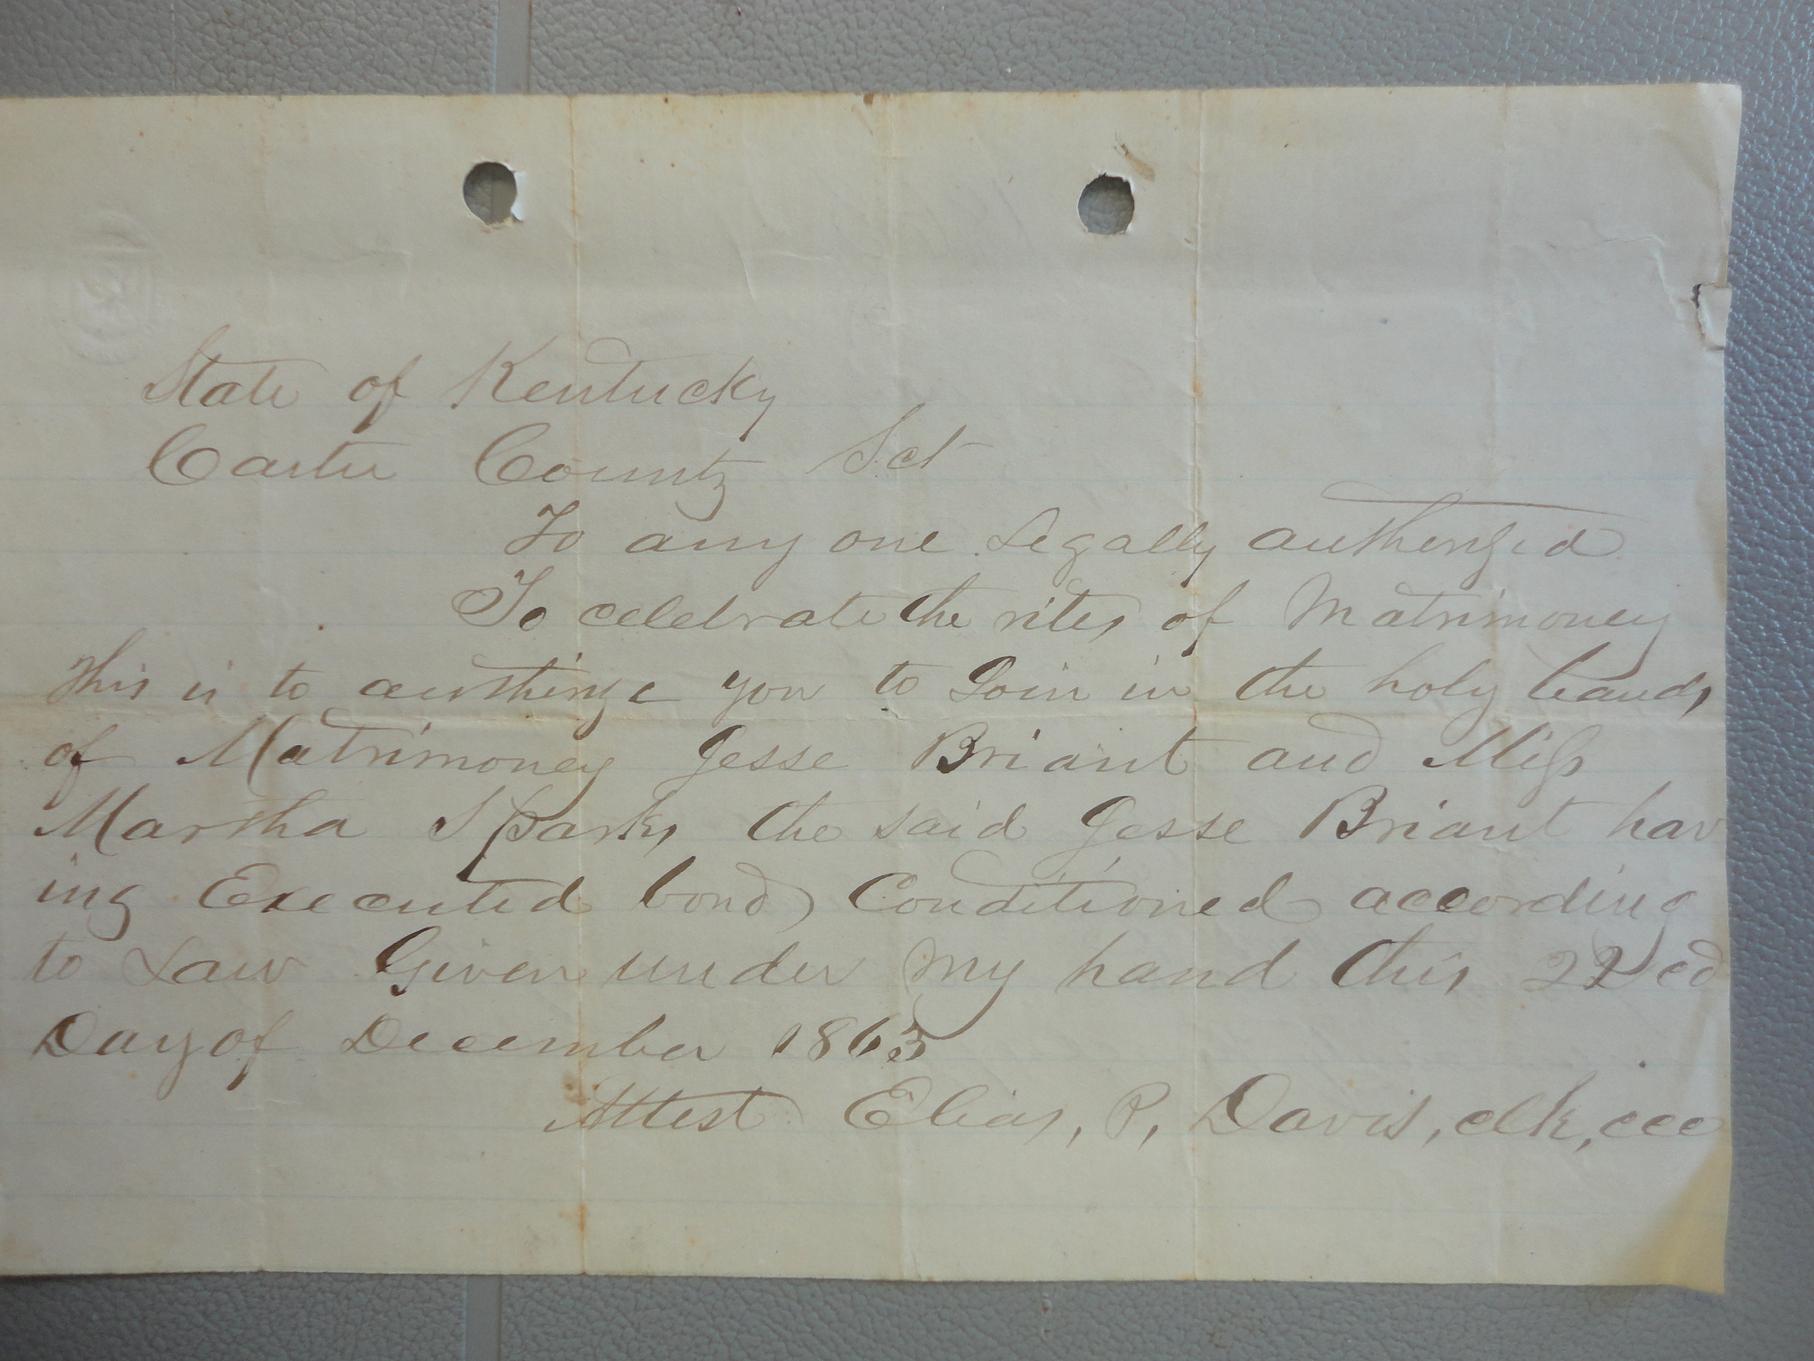 State of Kentucky
Carter County Sct
To any one Legally authorized
To celebrate the rites of Matrimoney
This is to authorize you to Join in the holy bands
of Matrimoney Jesse Briant and Miss
Martha Sparks the said Jesse Briant hav
ing Executed bond Conditioned according
to Law Given under my hand this 22ed
Day of December 1863
Attest Elias, P, Davis, clk, ccc